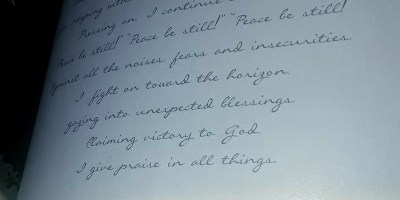 with
Pressing on. I continue
Peace be still!" "Peace be still!" "Peace be still!
Against all the noises, fears and insecurities.
I fight on toward the horizon
gazing into unexpected blessings
Claiming victory to God
I give praise in all things.